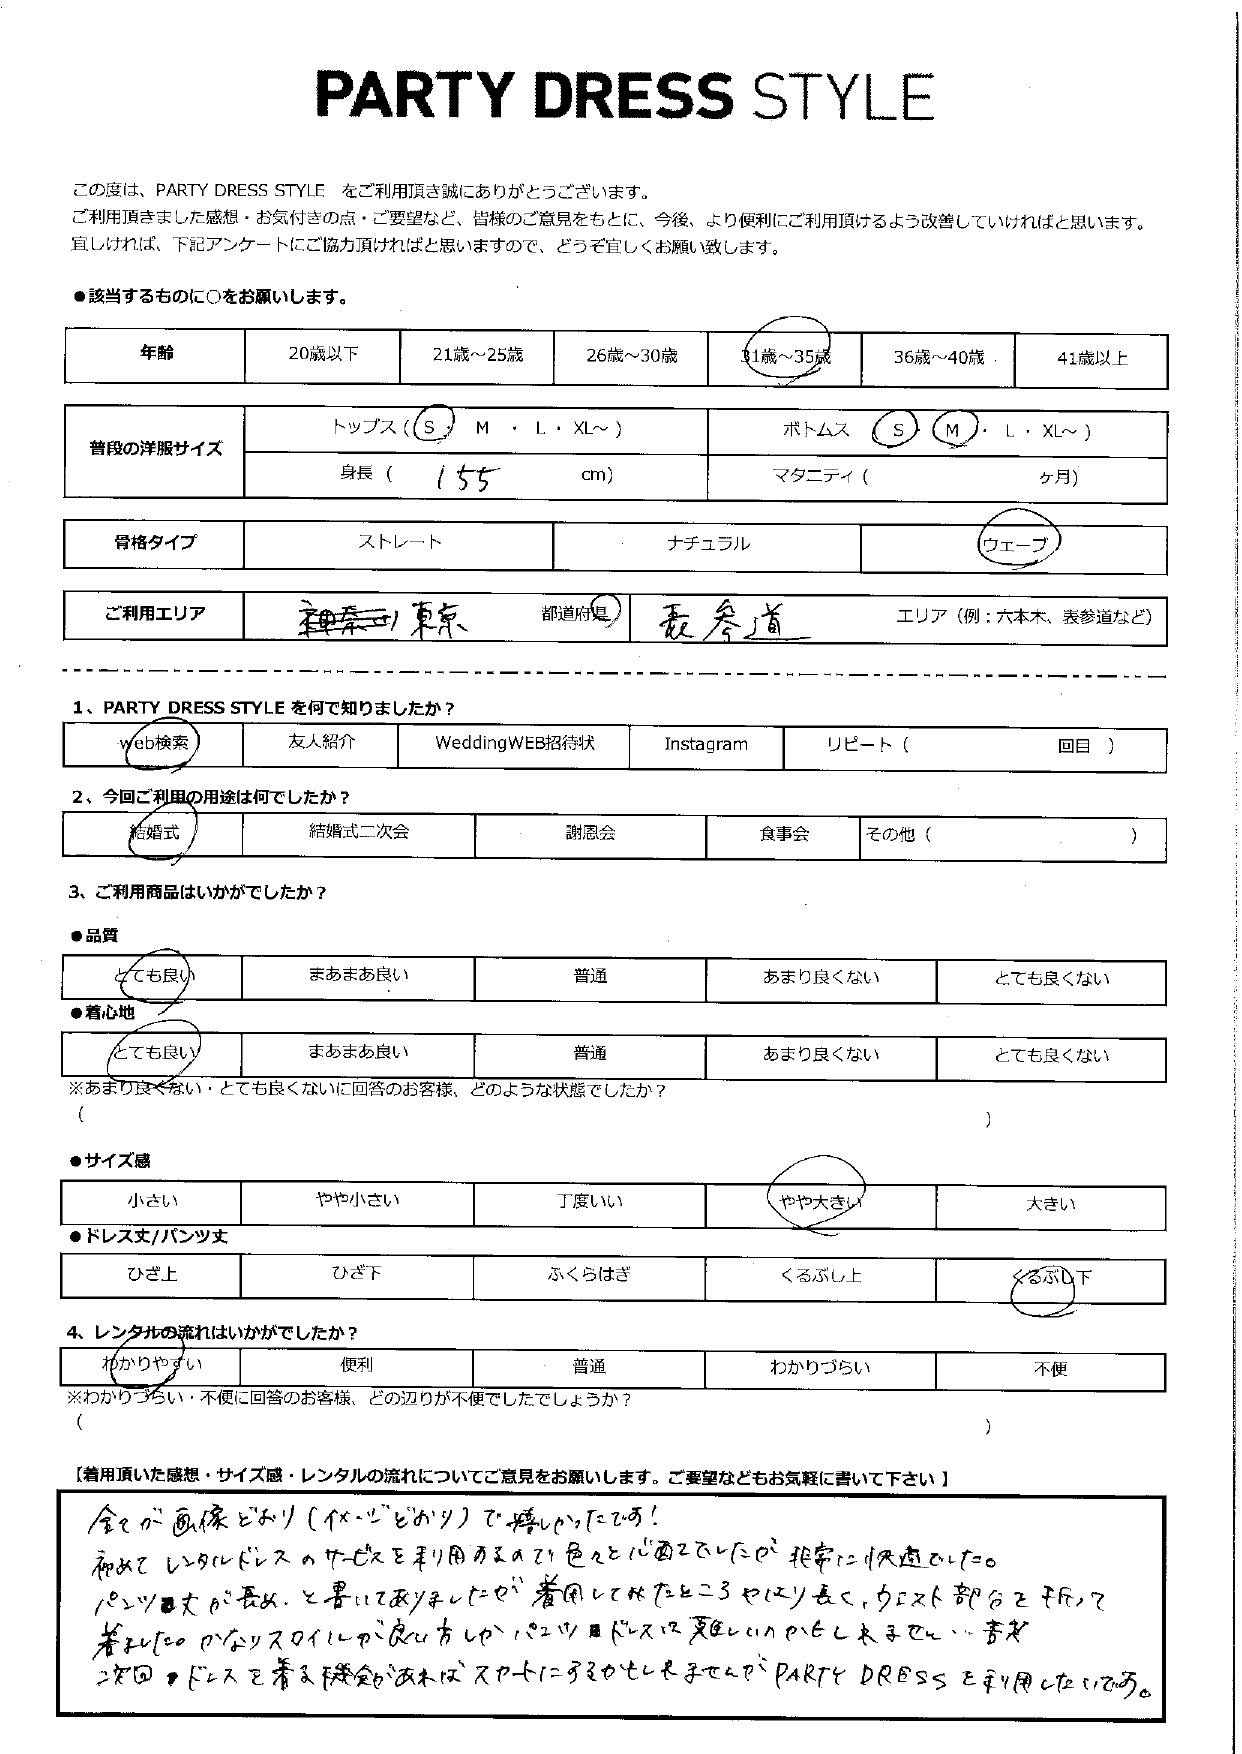 PARTY DRESS STYLE
この度は、PARTY DRESS STYLE をご利用頂き誠にありがとうございます。
ご利用頂きました感想・お気付きの点・ご要望など、皆様のご意見をもとに、今後、より便利にご利用頂けるよう改善していければと思います。
宜しければ、下記アンケートにご協力頂ければと思いますので、どうぞ宜しくお願い致します。
●該当するものに○をお願いします。
年齢 20歳以下 21歳～25歳 26歳～30歳 31歳～35歳 36歳～40歳 41歳以上
普段の洋服サイズ トップス ( S ・ M ・ L ・ XL～ ) ボトムス ( S ・ M ・ L ・ XL～ )
身長 ( 155 cm) マタニティ ( ケ月)
骨格タイプ ストレート ナチュラル ウェーブ
ご利用エリア 神奈川 東京 都道府県 表参道 エリア（例：六本木、表参道など）
1、PARTY DRESS STYLE を何で知りましたか？
web検索 友人紹介 WeddingWEB招待状 Instagram リピート ( 回目 )
2、今回ご利用の用途は何でしたか？
結婚式 結婚式二次会 謝恩会 食事会 その他 ( )
3、ご利用商品はいかがでしたか？
●品質
とても良い まあまあ良い 普通 あまり良くない とても良くない
●着心地
とても良い まあまあ良い 普通 あまり良くない とても良くない
※あまり良くない・とても良くないに回答のお客様、どのような状態でしたか？
( )
●サイズ感
小さい やや小さい 丁度いい やや大きい 大きい
●ドレス丈/パンツ丈
ひざ上 ひざ下 ふくらはぎ くるぶし上 くるぶし下
4、レンタルの流れはいかがでしたか？
わかりやすい 便利 普通 わかりづらい 不便
※わかりづらい・不便に回答のお客様、どの辺りが不便でしたでしょうか？
( )
【着用頂いた感想・サイズ感・レンタルの流れについてご意見をお願いします。ご要望などもお気軽に書いて下さい 】
全てが画像どおり(イメージどおり)で嬉しかったです！
初めてレンタルドレスのサービスを利用するので色々と心配でしたが非常に快適でした。
パンツ丈が長め、と書いてありましたが着用してみたところやはり長く、ウエスト部分を折って
着ました。かなりスタイルが良い方しかパンツドレスは難しいのかもしれません…
次回ドレスを着る機会があればスカートにするかもしれませんがPARTY DRESSを利用したいです。